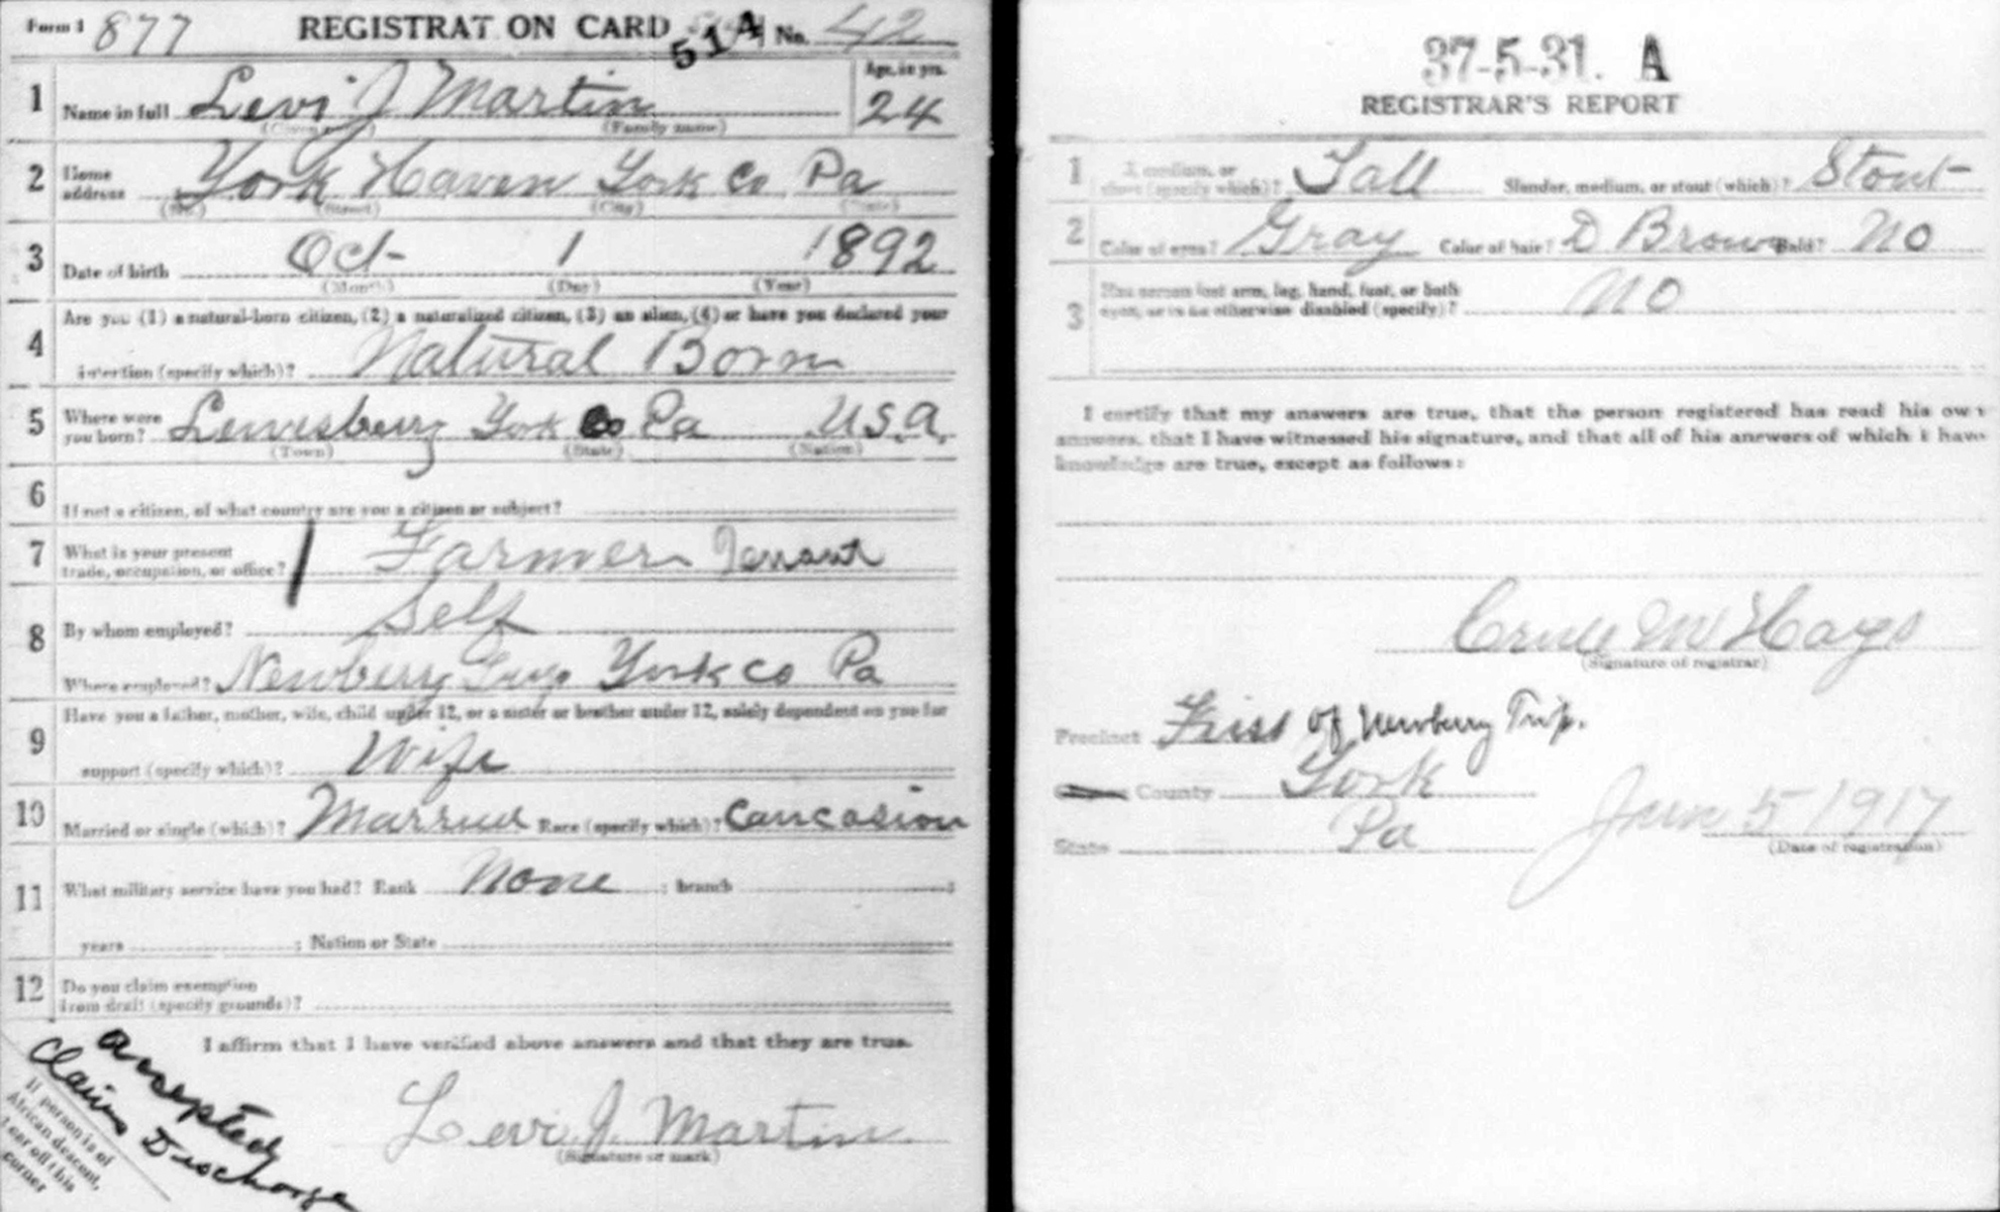 Form 1 877 REGISTRAT ON CARD 514 No. 42
1 Name in full Levi J Martin Age, in yrs. 24
(Given name) (Family name)
2 Home address York Haven York Co Pa
(No.) (Street) (City) (State)
3 Date of birth Oct- 1 1892
(Month) (Day) (Year)
4 Are you (1) a natural-born citizen, (2) a naturalized citizen, (3) an alien, (4) or have you declared your
intention (specify which)? Natural Born
5 Where were you born? Lewisberry York Co Pa U.S.A.
(Town) (State) (Nation)
6 If not a citizen, of what country are you a citizen or subject?
7 What is your present trade, occupation, or office? Farmer Tenant
8 By whom employed? Self
Where employed? Newberry Twp York co Pa
9 Have you a father, mother, wife, child under 12, or a sister or brother under 12, solely dependent on you for
support (specify which)? Wife
10 Married or single (which)? Married Race (specify which)? Caucasion
11 What military service have you had? Rank None ; branch ;
years ; Nation or State
12 Do you claim exemption from draft (specify grounds)?
I affirm that I have verified above answers and that they are true.
Levi J. Martin
(Signature or mark)
Claims Discharge
If person is of
African descent,
tear off this
corner
37-5-31. A
REGISTRAR'S REPORT
1 medium, or short (specify which)? Tall Slender, medium, or stout (which)? Stout
2 Color of eyes? Gray Color of hair? D Brown Bald? No
3 Has person lost arm, leg, hand, foot, or both
eyes, or is he otherwise disabled (specify)? No
I certify that my answers are true, that the person registered has read his own
answers, that I have witnessed his signature, and that all of his answers of which I have
knowledge are true, except as follows:
Hays
(Signature of registrar)
Precinct of Newberry Twp.
County York
State Pa Jun 5 1917
(Date of registration)